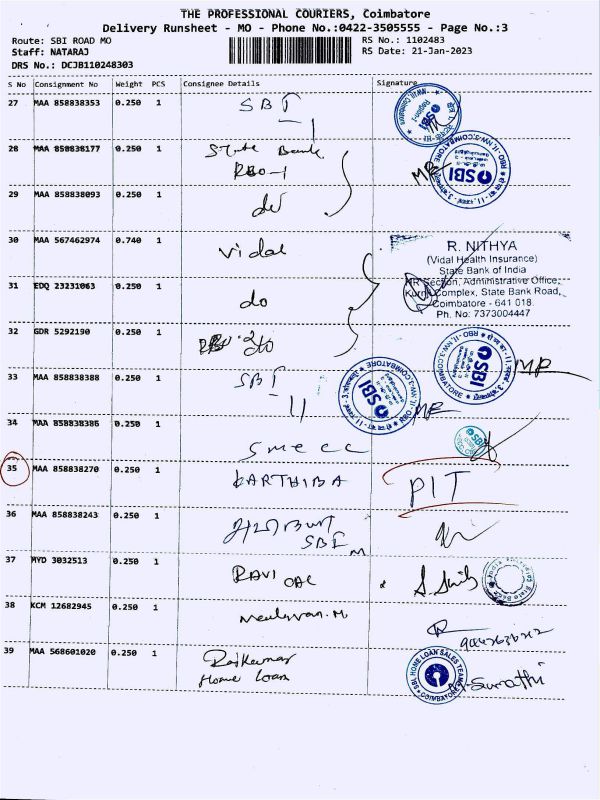 THE PROFESSIONAL COURIERS, Coimbatore
Delivery Runsheet - MO - Phone No.:0422-3505555 - Page No.:3
Route: SBI ROAD MO
RS No.: 1102483
Staff: NATARAJ
RS Date: 21-Jan-2023
DRS No.: DCJB110248303
S No Consignment No Weight PCS Consignee Details Signature
27 MAA 858838353 0.250 1 SBI
28 MAA 858838177 0.250 1 State Bank
RBO-1
29 MAA 858838093 0.250 1 do
30 MAA 567462974 0.740 1 Vidal
R. NITHYA
(Vidal Health Insurance)
State Bank of India
HR Section, Administrative Office,
31 EDQ 23231063 0.250 1 do
Complex, State Bank Road,
Coimbatore - 641 018.
Ph. No: 7373004447
32 GDR 5292190 0.250 1 do
SBI
33 MAA 858838388 0.250 1 SBI
- 11
SBI
34 MAA 858838386 0.250 1 smecc
35 MAA 858838270 0.250 1 KARTHIBA PIT
36 MAA 858838243 0.250 1
SBI
37 MYD 3032513 0.250 1 RAVI
38 KCM 12682945 0.250 1
39 MAA 568601020 0.250 1 Rajkumar
Home Loan
SBI HOME LOAN SALES TEAM
COIMBATORE